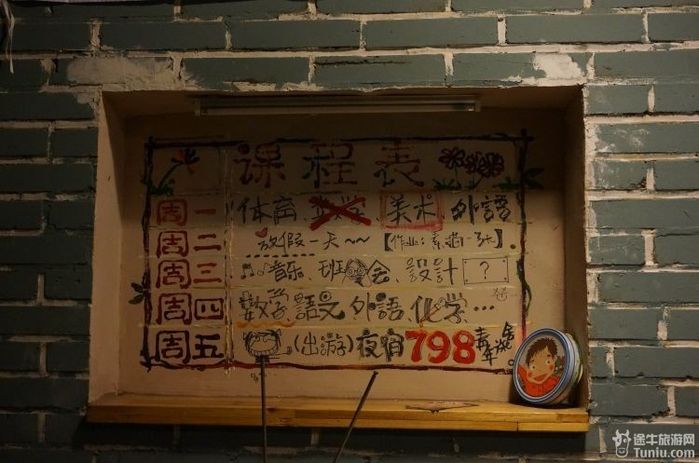 课程表
周一 体育 美术 外語
周二 放假一天~~ 【作业:素描3张】.
周三 音乐、班会、設計 ?
周四 数学 語文 外語、化学…
周五 (出游)夜宿798青年旅舍
途牛旅游网
Tuniu.com